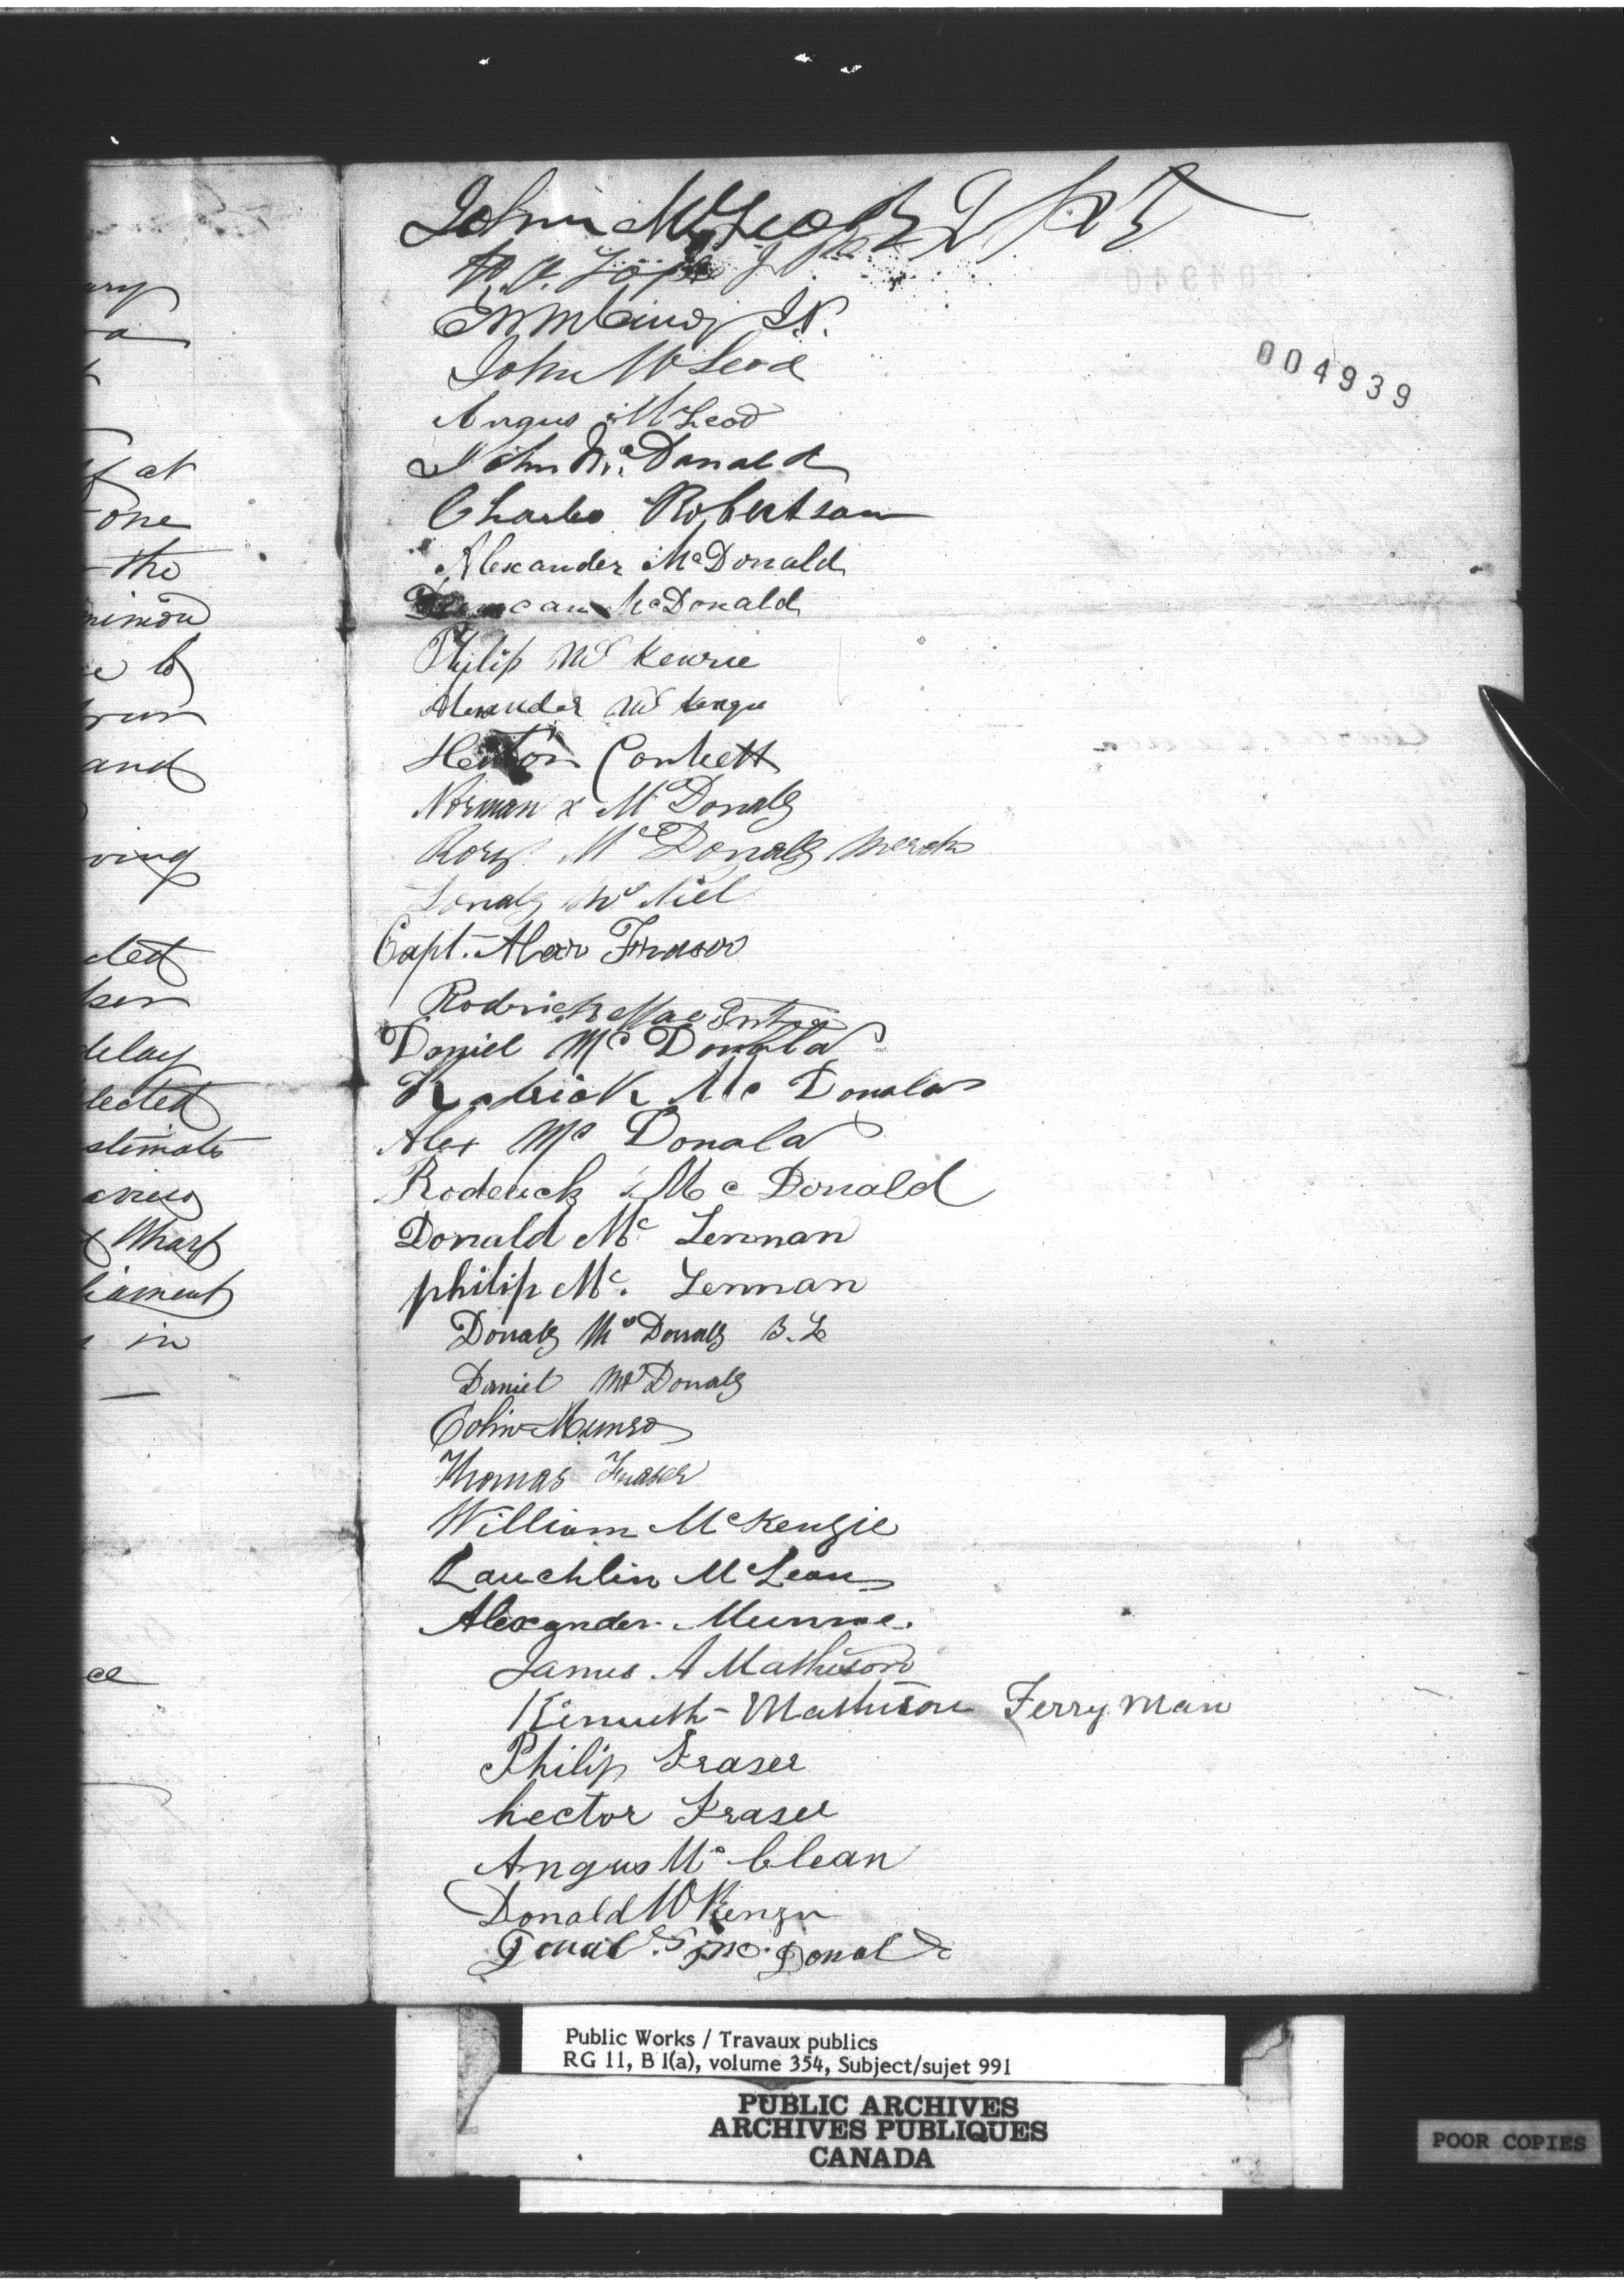 ary
a
at
one
the
minion
e to
run
and
ving
cted
ber
delay
lected
stimate
aving
Wharf
liament
in
ce
John McLeod
John McLeod
Angus McLeod
John Mc Donald
Charles Robertson
Alexander McDonald
Duncan McDonald
Philip Mc Kenzie
Alexander Mc
Corbett
Norman x Mc Donald
Rory Mc Donald merch
Donald Mc Niel
Capt. Alexr Fraser
Roderick Mac
Daniel Mc Donald
Rodrick Mc Donald
Alex Mc Donald
Roderick Mc Donald
Donald Mc Lennan
philip Mc. Lennan
Donald Mc Donald B. L
Daniel McDonald
Colin Munro
Thomas Fraser
William McKenzie
Lauchlin McLean
Alexander Munroe.
James A Mathison
Kenneth Mathison Ferry Man
Philip Fraser
hector Fraser
Angus Mc Clean
Donald McKenzie
Donald
004939
Public Works / Travaux publics
RG 11, B 1(a), volume 354, Subject/sujet 991
PUBLIC ARCHIVES
ARCHIVES PUBLIQUES
CANADA
POOR COPIES